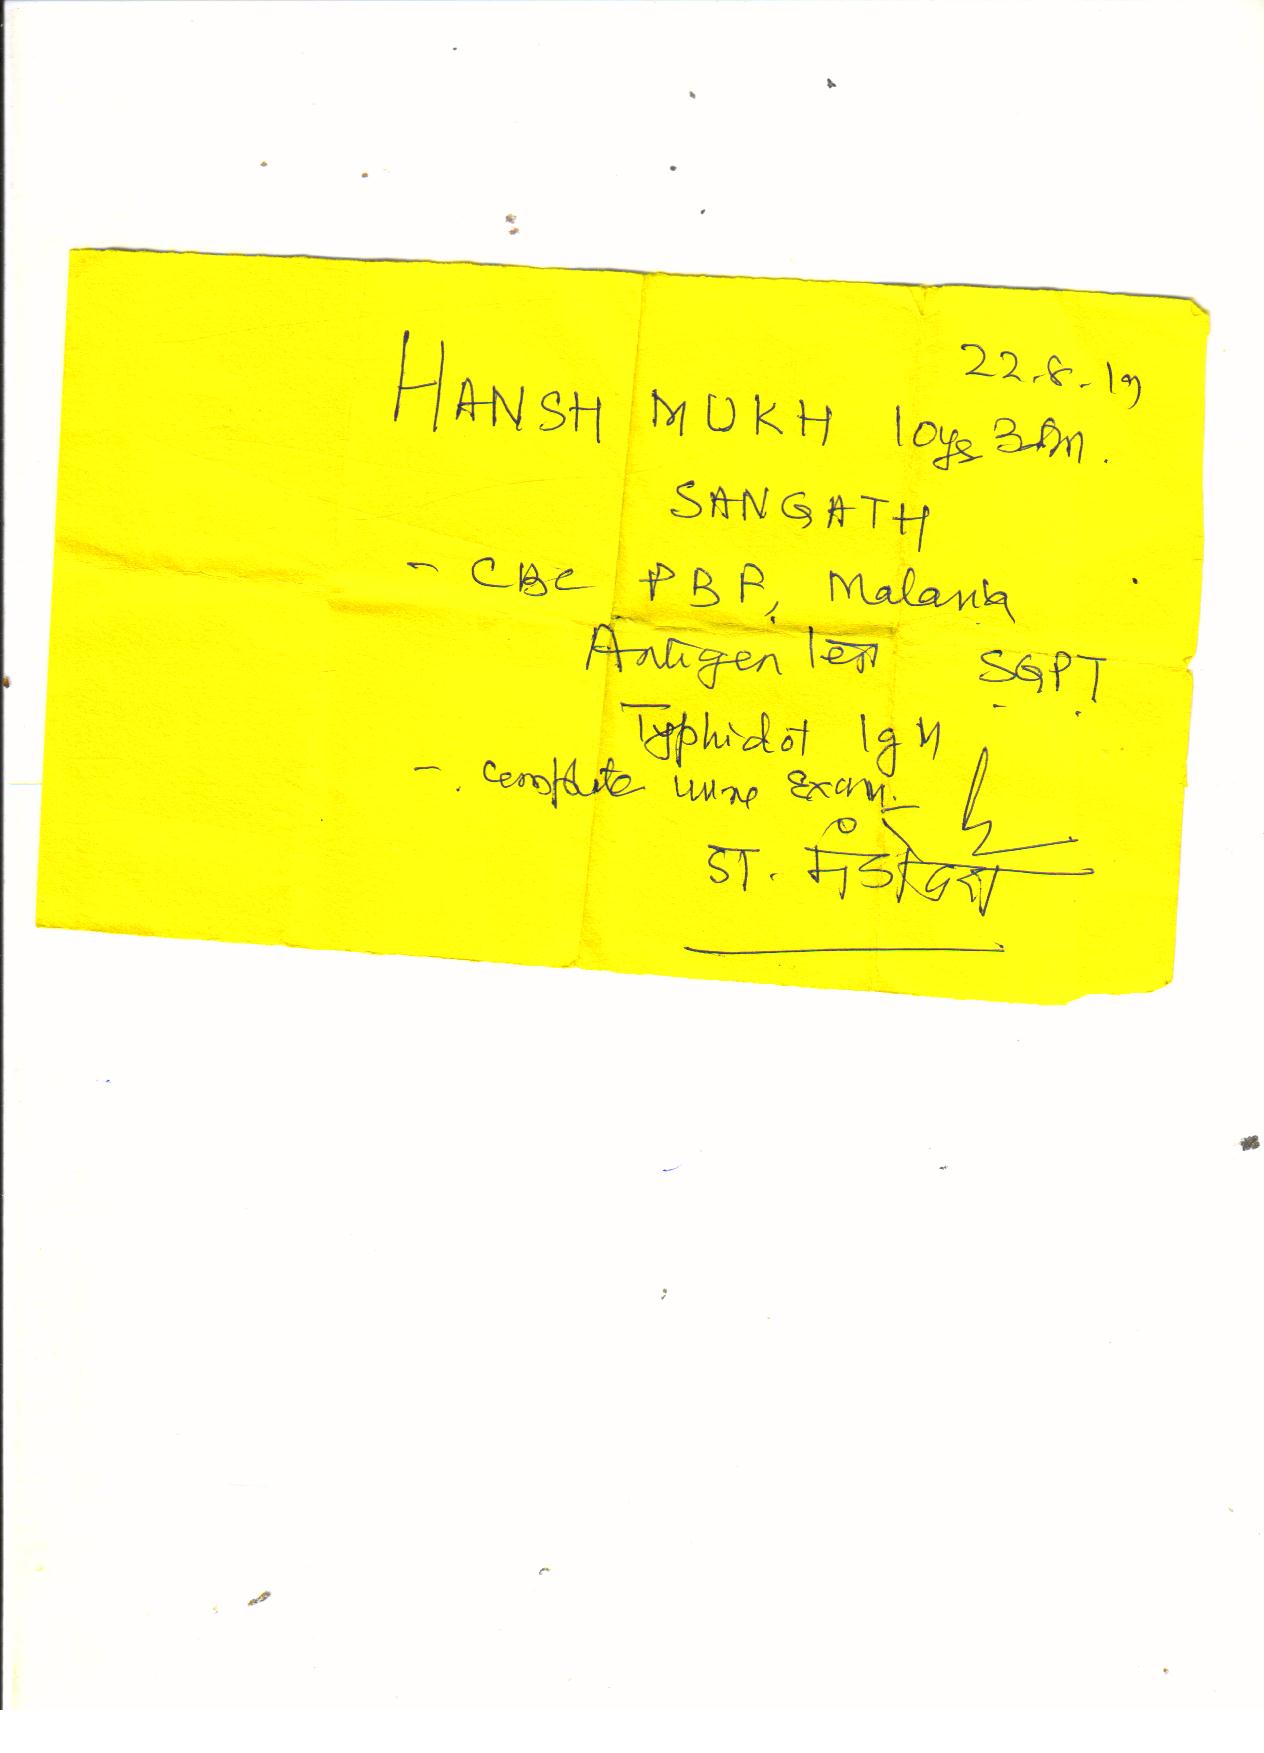 22.8.19
HANSH MUKH 10ys 3m.
SANGATH
- CBC PBF, Malaria
Antigen Test SGPT
Typhidot IgM
- complete urine Exam.
डा.